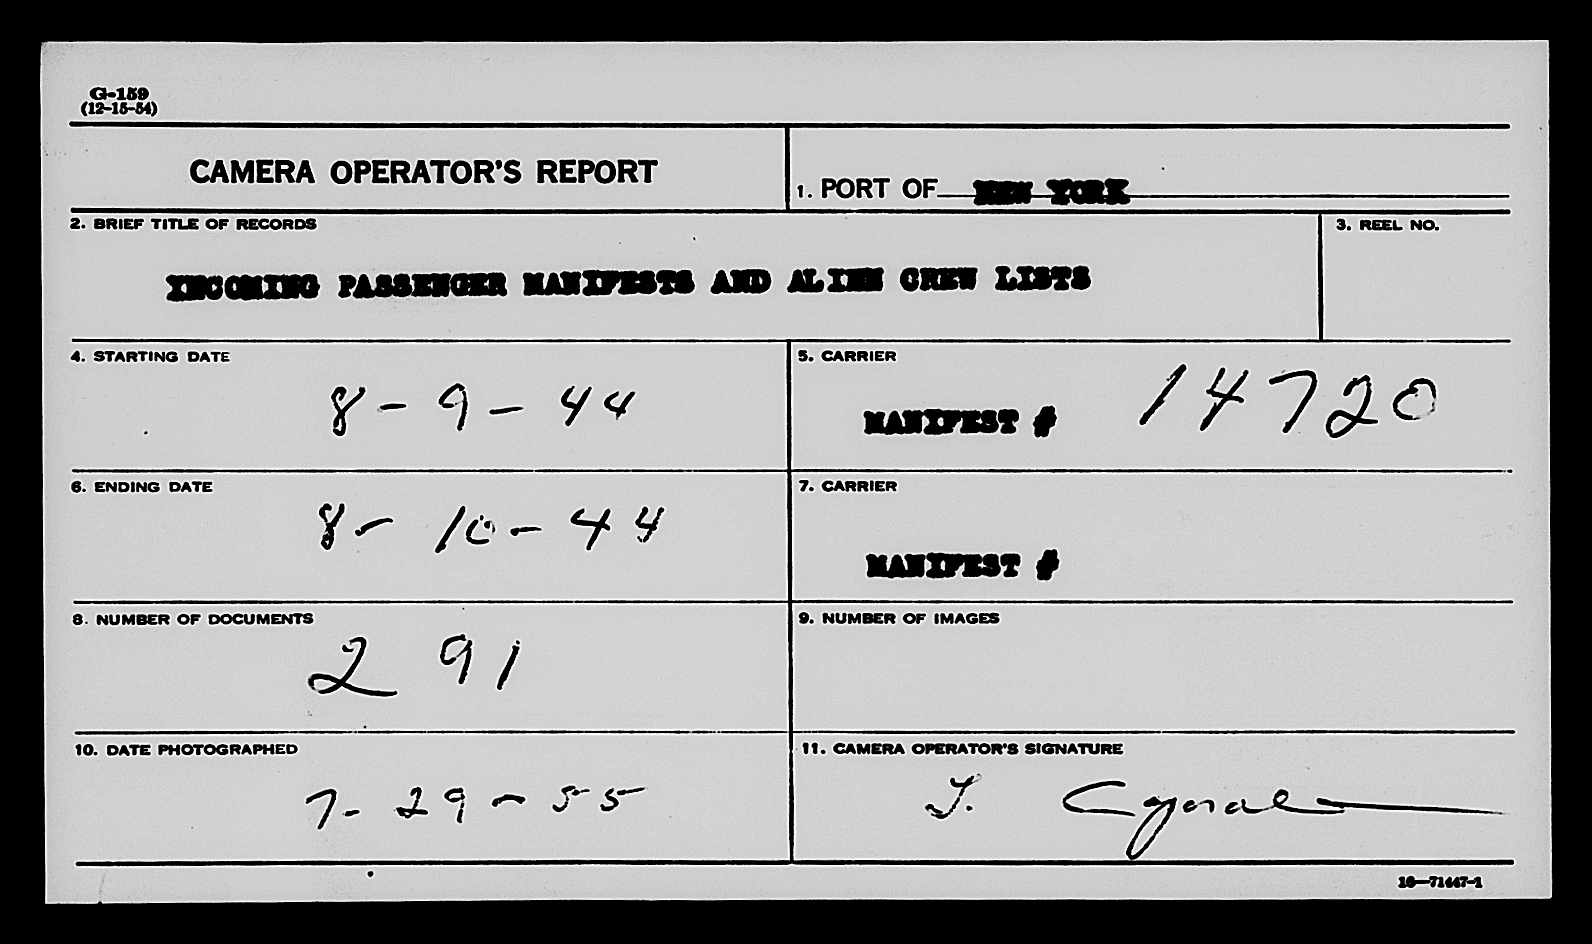 G-159
(12-15-54)
CAMERA OPERATOR'S REPORT
1. PORT OF NEW YORK
2. BRIEF TITLE OF RECORDS
INCOMING PASSENGER MANIFESTS AND ALIEN CREW LISTS
3. REEL NO.
4. STARTING DATE
8-9-44
5. CARRIER
MANIFEST # 14720
6. ENDING DATE
8-10-44
7. CARRIER
MANIFEST #
8. NUMBER OF DOCUMENTS
291
9. NUMBER OF IMAGES
10. DATE PHOTOGRAPHED
7-29-55
11. CAMERA OPERATOR'S SIGNATURE
16—71447-1